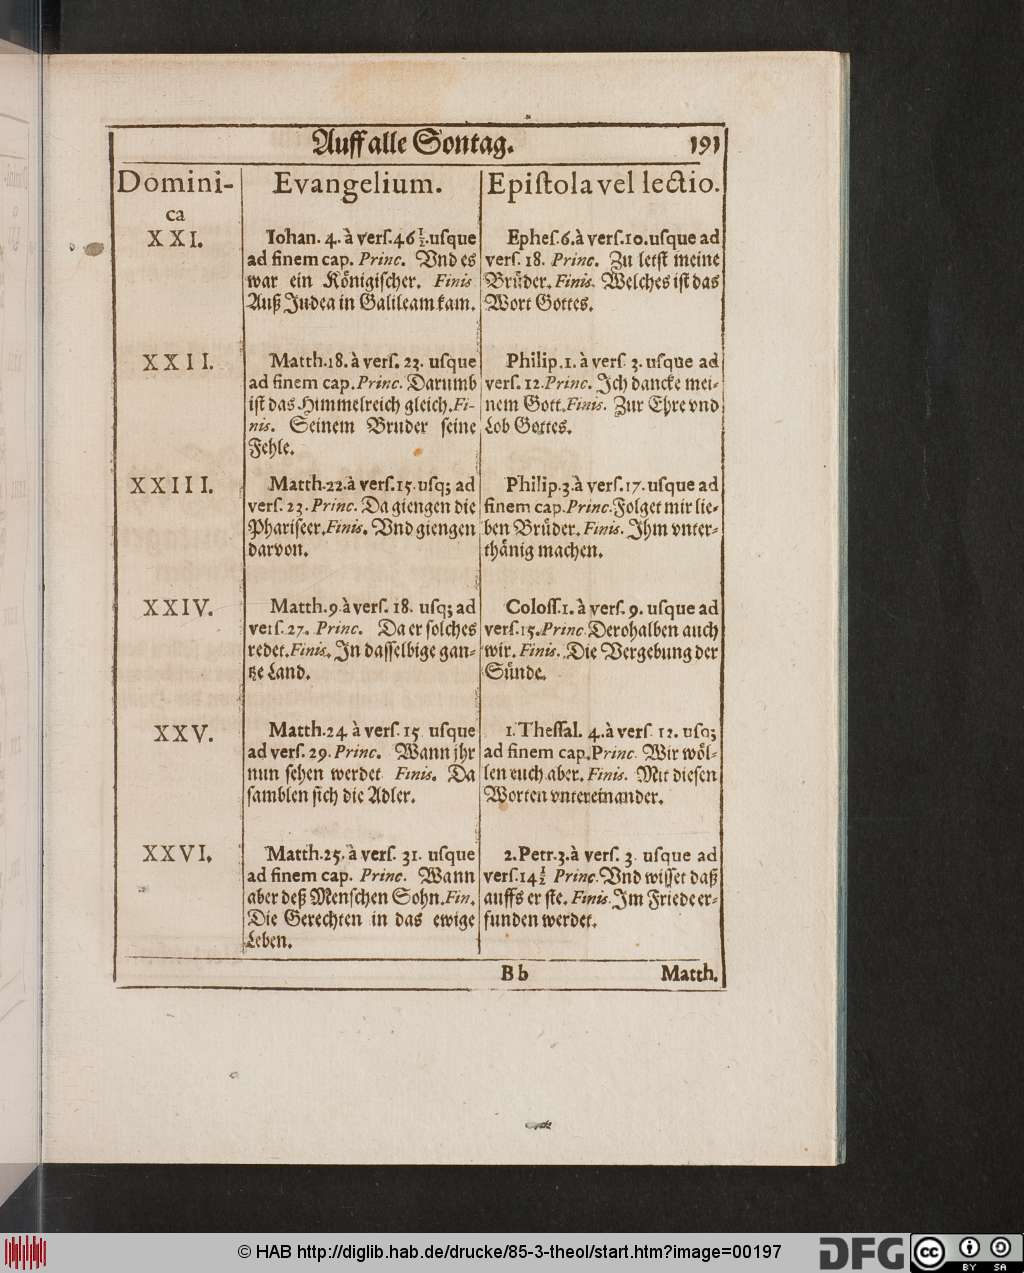 Auff alle Sontag. 191
Domini-
ca
Evangelium.
Epistola vel lectio.
XXI.
Iohan. 4. à vers. 46 ½. usque
ad finem cap. Princ. Vnd es
war ein Königischer. Finis
Auß Judea in Galileam kam.
Ephes. 6. à vers. 10. usque ad
vers. 18. Princ. Zu letst meine
Brüder. Finis. Welches ist das
Wort Gottes.
XXII.
Matth. 18. à vers. 23. usque
ad finem cap. Princ. Darumb
ist das Himmelreich gleich. Fi-
nis. Seinem Bruder seine
Fehle.
Philip. 1. à vers. 3. usque ad
vers. 12. Princ. Ich dancke mei-
nem Gott. Finis. Zur Ehre vnd
Lob Gottes.
XXIII.
Matth. 22. à vers. 15. usq; ad
vers. 23. Princ. Da giengen die
Phariseer. Finis. Vnd giengen
darvon.
Philip. 3. à vers. 17. usque ad
finem cap. Princ. Folget mir lie-
ben Brüder. Finis. Ihm vnter-
thänig machen.
XXIV.
Matth. 9. à vers. 18. usq; ad
vers. 27. Princ. Da er solches
redet. Finis. In dasselbige gan-
tze Land.
Coloss. 1. à vers. 9. usque ad
vers. 15. Princ. Derohalben auch
wir. Finis. Die Vergebung der
Sünde.
XXV.
Matth. 24 à vers. 15. usque
ad vers. 29. Princ. Wann jhr
nun sehen werdet Finis. Da
samblen sich die Adler.
1. Thessal. 4. à vers. 12. usq;
ad finem cap. Princ. Wir wöl-
len euch aber. Finis. Mit diesen
Worten vntereinander.
XXVI.
Matth. 25. à vers. 31. usque
ad finem cap. Princ. Wann
aber deß Menschen Sohn. Fin.
Die Gerechten in das ewige
Leben.
2. Petr. 3. à vers. 3. usque ad
vers. 14 ½ Princ. Vnd wisset daß
auffs er ste. Finis. Im Friede er-
funden werdet.
B b Matth.
© HAB http://diglib.hab.de/drucke/85-3-theol/start.htm?image=00197
DFG cc BY SA